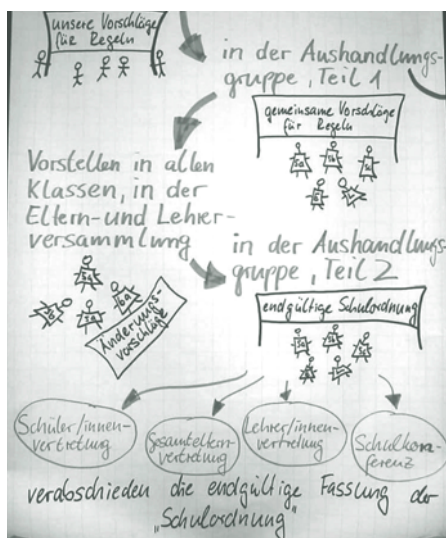 unsere Vorschläge
für Regeln
in der Aushandlungs-
gruppe, Teil 1
gemeinsame Vorschläge
für Regeln
5a
5b
5c
Vorstellen in allen
Klassen, in der
Eltern- und Lehrer-
versammlung
5a
6a
Änderungs-
vorschläge
in der Aushandlungs-
gruppe, Teil 2
endgültige Schulordnung
5a
5b
5c
Schüler/innen-
vertretung
Gesamteltern-
vertretung
Lehrer/innen-
vertretung
Schulkon-
ferenz
verabschieden die endgültige Fassung der
„Schulordnung"